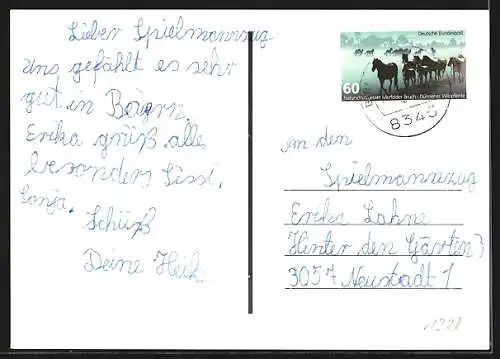 Lieber Spielmannszug
uns gefählt es sehr
gut in Bayern.
Erika grüß alle
besonders Sissi,
Sonja.
Schüß
Deine Heike
Deutsche Bundespost
60
Naturschutzgebiet Merfelder Bruch · Dülmener Wildpferde
8345
An den
Spielmannszug
Erika Lahne
Hinter den Gärten 3
3057 Neustadt 1